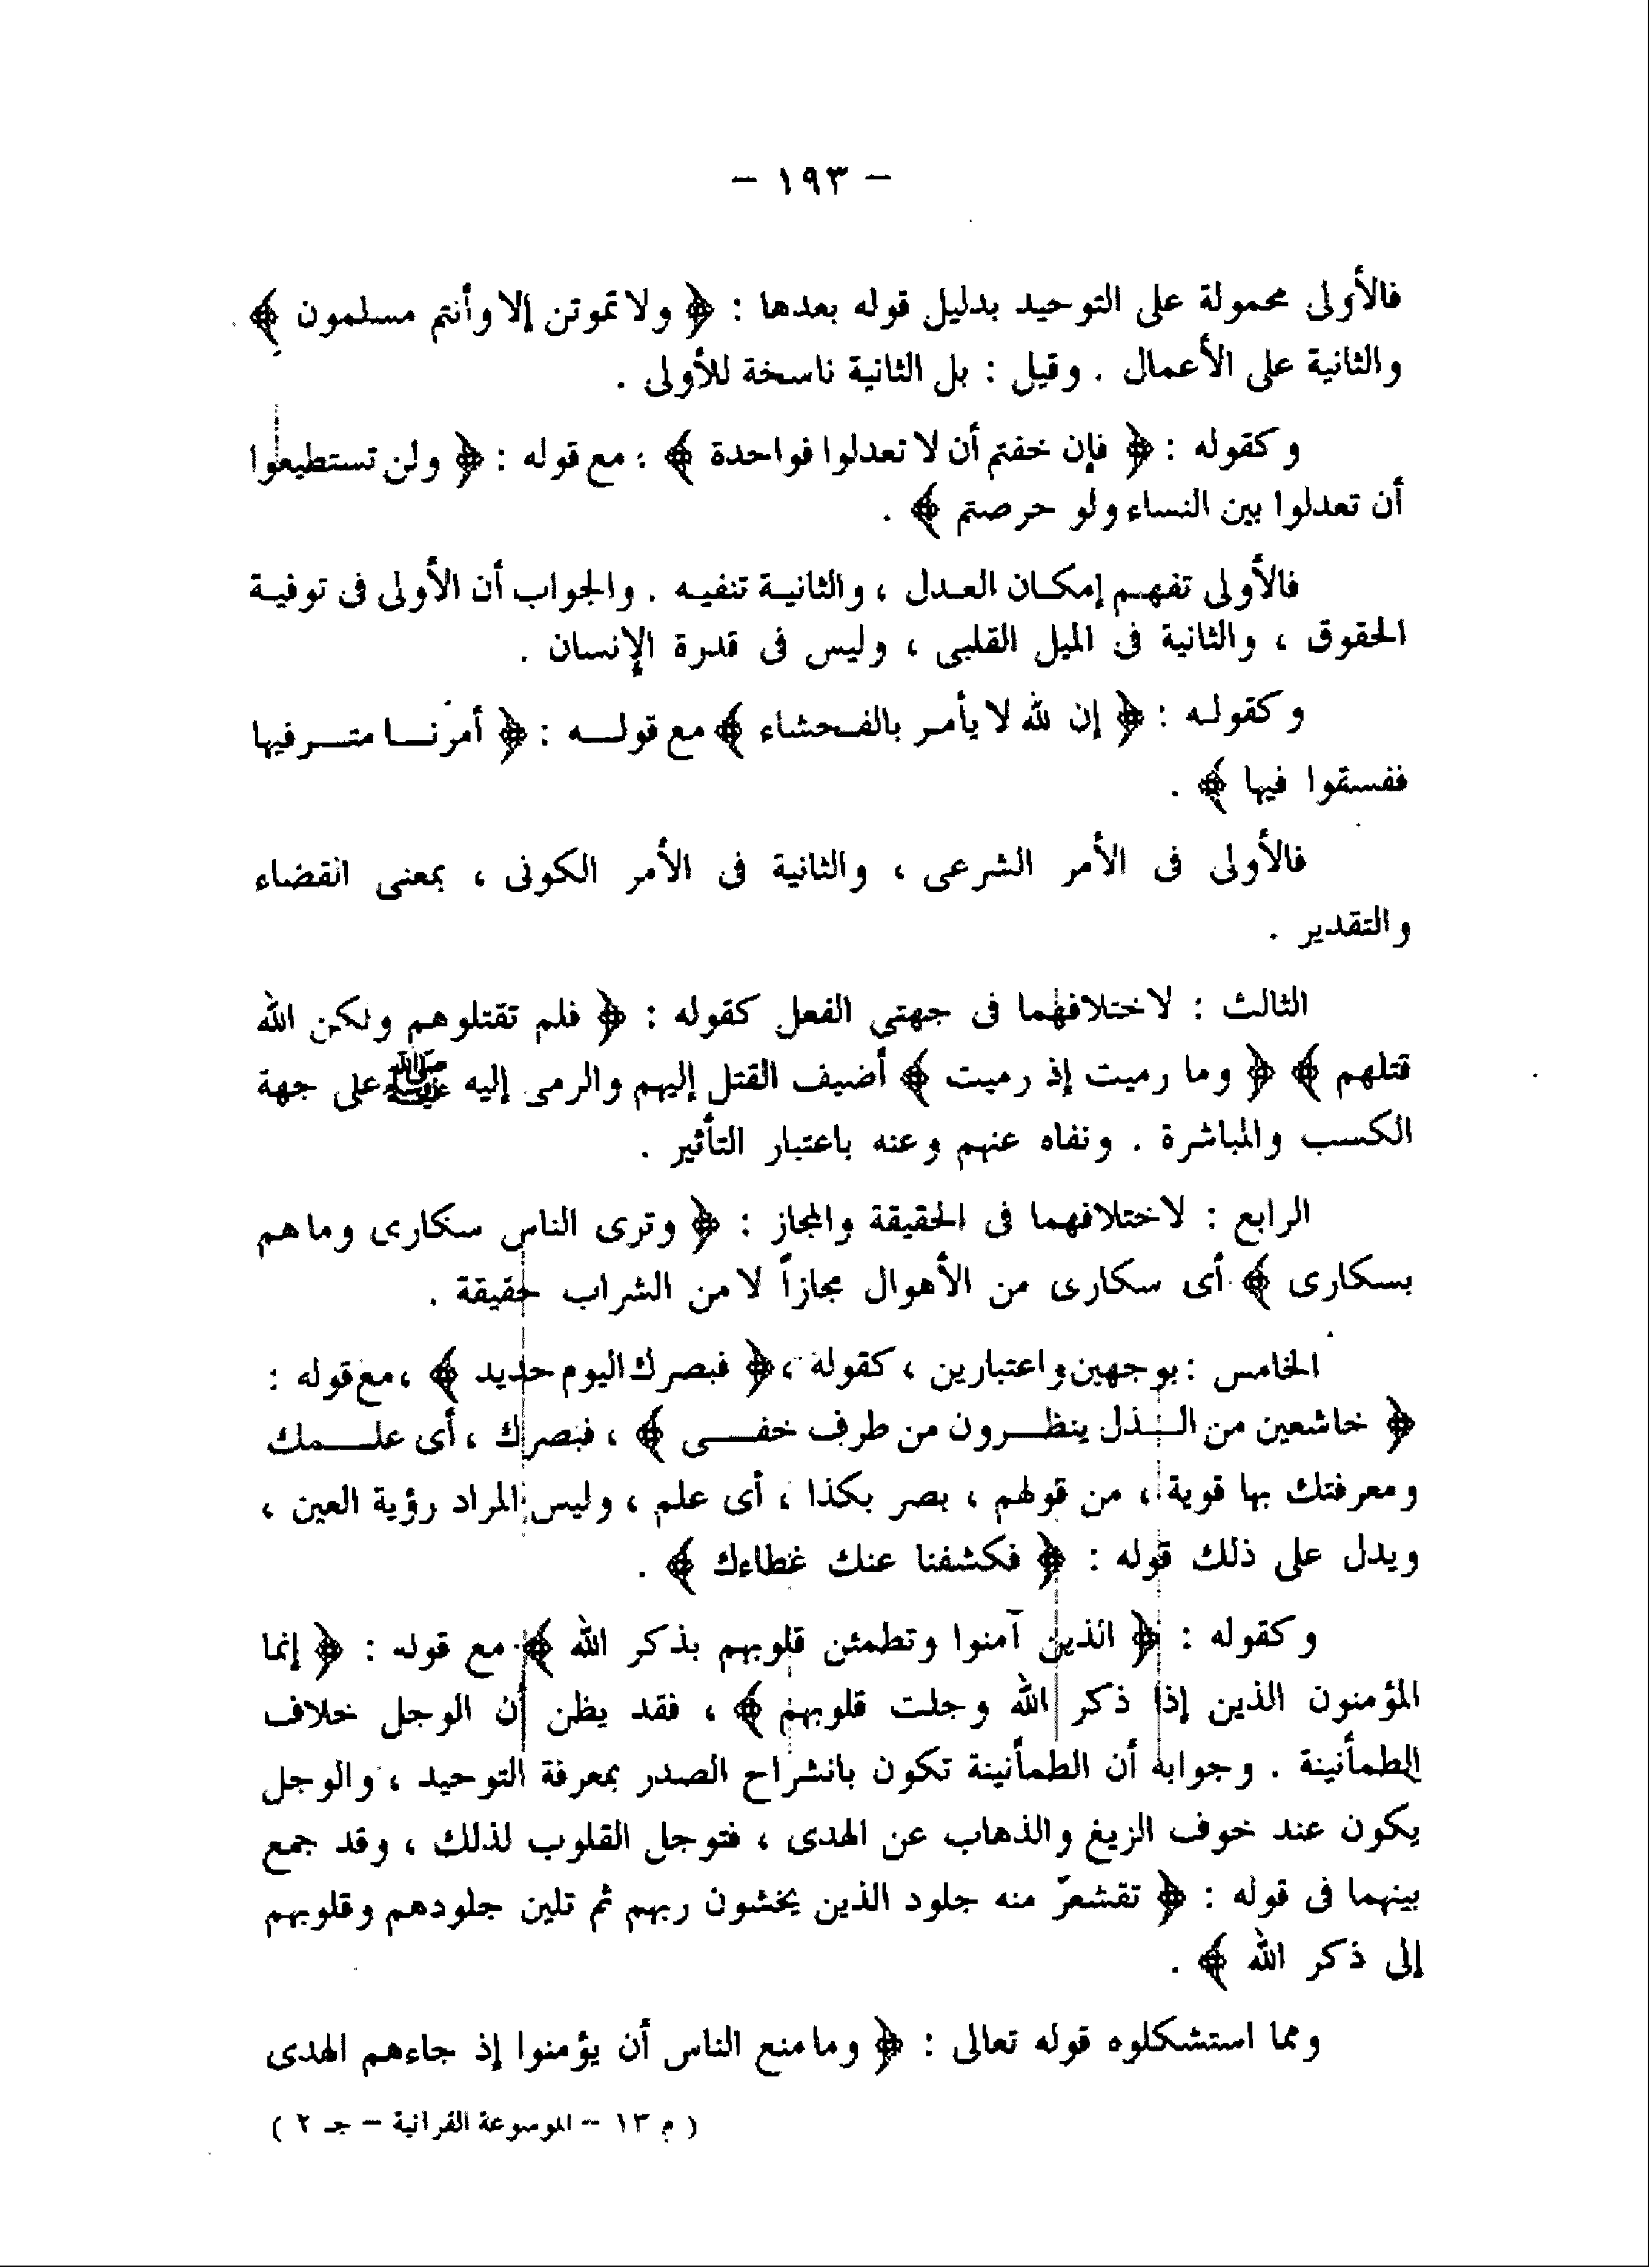 - ١٩٣ -
فالأولى محمولة على التوحيد بدليل قوله بعدها : ﴿ ولا تموتن إلا وأنتم مسلمون ﴾
والثانية على الأعمال . وقيل : بل الثانية ناسخة للأولى .
وكقوله : ﴿ فإن خفتم أن لا تعدلوا فواحدة ﴾ ؛ مع قوله : ﴿ ولن تستطيعوا
أن تعدلوا بين النساء ولو حرصتم ﴾ .
فالأولى تفهم إمكان العدل ، والثانية تنفيه . والجواب أن الأولى فى توفية
الحقوق ، والثانية فى الميل القلبى ، وليس فى قدرة الإنسان .
وكقوله : ﴿ إن لله لا يأمر بالفحشاء ﴾ مع قوله : ﴿ أمرنا مترفيها
ففسقوا فيها ﴾ .
فالأولى فى الأمر الشرعى ، والثانية فى الأمر الكونى ، بمعنى القضاء
والتقدير .
الثالث : لاختلافهما فى جهتى الفعل كقوله : ﴿ فلم تقتلوهم ولكن الله
قتلهم ﴾ ﴿ وما رميت إذ رميت ﴾ أضيف القتل إليهم والرمى إليه ﷺ على جهة
الكسب والمباشرة . ونفاه عنهم وعنه باعتبار التأثير .
الرابع : لاختلافهما فى الحقيقة والمجاز : ﴿ وترى الناس سكارى وما هم
بسكارى ﴾ أى سكارى من الأهوال مجازاً لا من الشراب حقيقة .
الخامس : بوجهين واعتبارين ، كقوله ، ﴿ فبصرك اليوم حديد ﴾ ، مع قوله :
﴿ خاشعين من الذل ينظرون من طرف خفى ﴾ ، فبصرك ، أى علمك
ومعرفتك بها قوية ، من قولهم ، بصر بكذا ، أى علم ، وليس المراد رؤية العين ،
ويدل على ذلك قوله : ﴿ فكشفنا عنك غطاءك ﴾ .
وكقوله : ﴿ الذين آمنوا وتطمئن قلوبهم بذكر الله ﴾ مع قوله : ﴿ إنما
المؤمنون الذين إذا ذكر الله وجلت قلوبهم ﴾ ، فقد يظن أن الوجل خلاف
الطمأنينة . وجوابه أن الطمأنينة تكون بانشراح الصدر بمعرفة التوحيد ، والوجل
يكون عند خوف الزيغ والذهاب عن الهدى ، فتوجل القلوب لذلك ، وقد جمع
بينهما فى قوله : ﴿ تقشعرّ منه جلود الذين يخشون ربهم ثم تلين جلودهم وقلوبهم
إلى ذكر الله ﴾ .
ومما استشكلوه قوله تعالى : ﴿ وما منع الناس أن يؤمنوا إذ جاءهم الهدى
( م ١٣ - الموسوعة القرآنية - جـ ٢ )